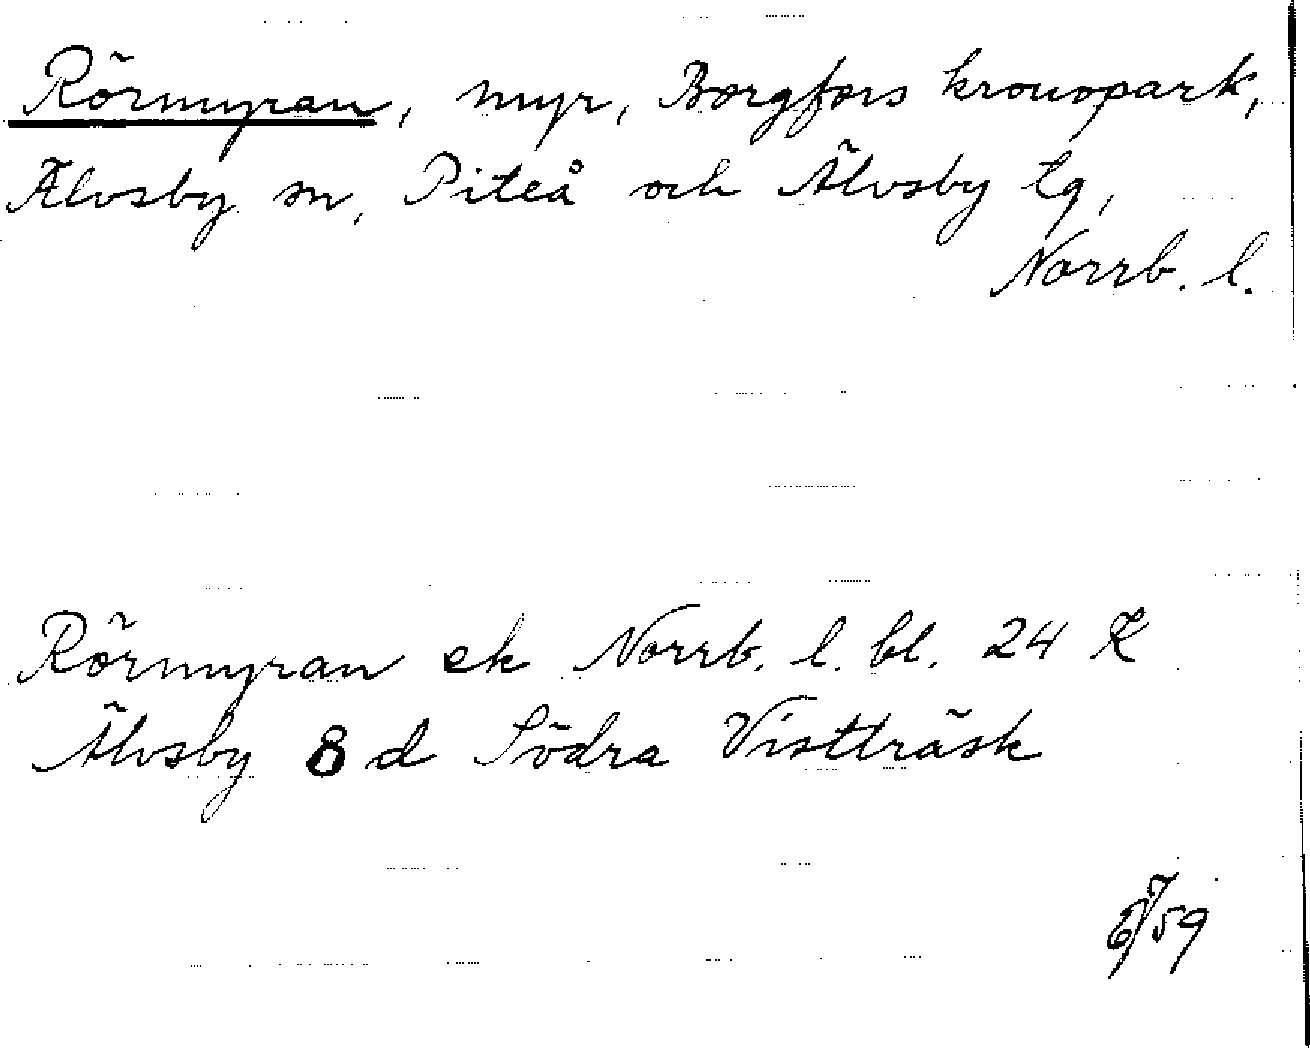 Rörmyran, myr, Borgfors kronopark,
Älvsby sn, Piteå och Älvsby tg,
Norrb. l.
Rörmyran ek Norrb. l. bl. 24 K
Älvsby 8 d Södra Vistträsk
59